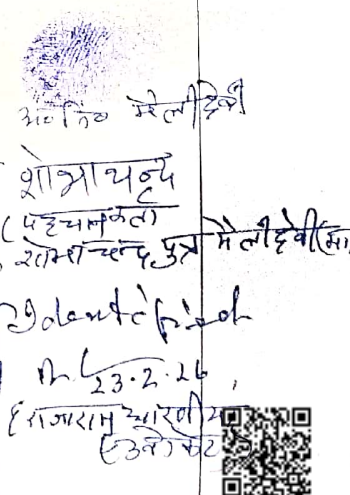 अं० नि० मैलीदेवी
शोभाचन्द
(पहचानकर्ता)
शोभाचन्द पुत्र मैलीदेवी (मा
Identified
23.2.26
राजाराम